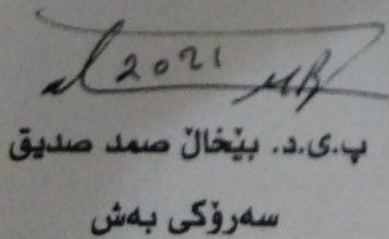 2021
پ.ی.د. بێخاڵ صمد صدیق
سەرۆکی بەش